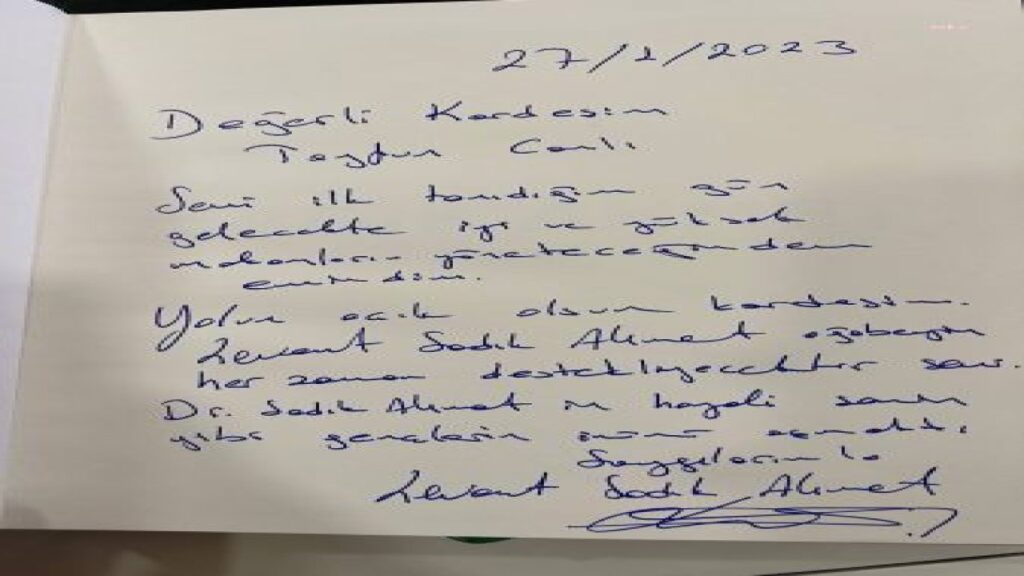 27/1/2023
Değerli Kardeşim
Toygun Canlı
Seni ilk tanıdığım gün
gelecekte iyi ve yüksek
makamların yöneteceğinden
emindim.
Yolun açık olsun kardeşim.
Levent Sadık Ahmet ağabeyin
her zaman destekleyecektir seni.
Dr. Sadık Ahmet in hayali senin
gibi gençlerin önünü açmaktı.
Saygılarımla
Levent Sadık Ahmet